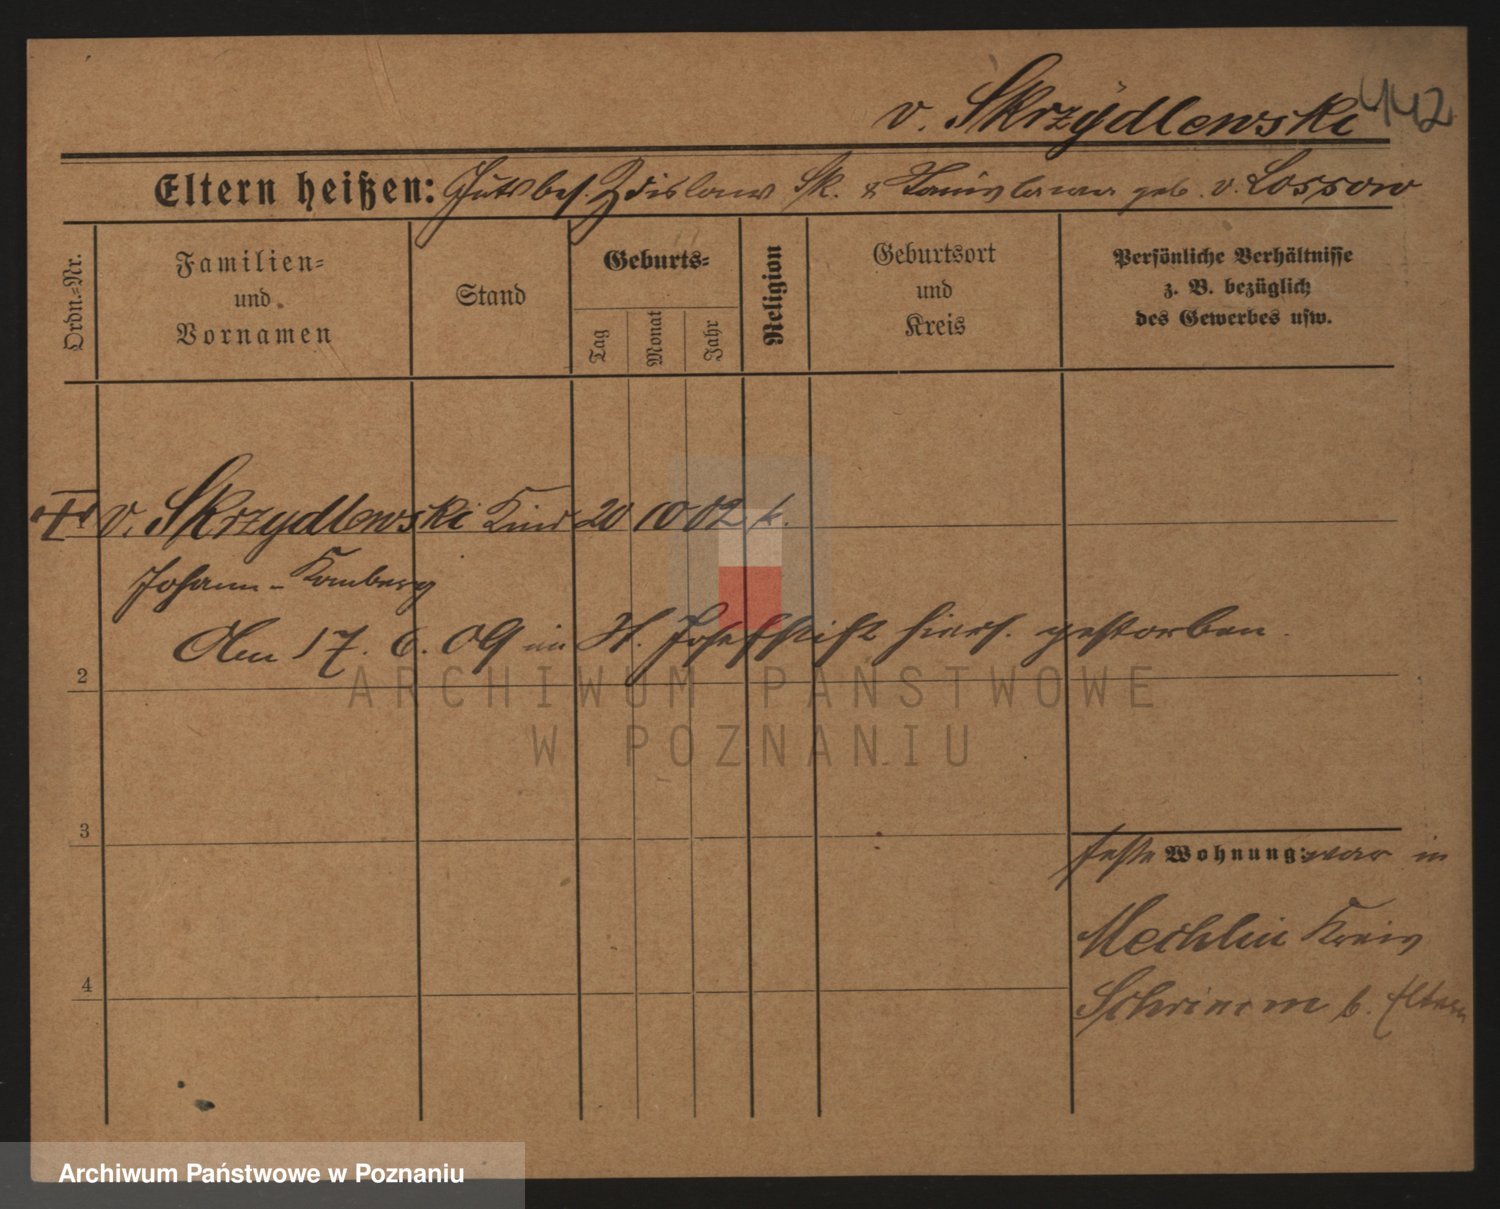 v. Skrzydlewski 442
Eltern heißen: Gutsbes. Zdislaw Sk. & Stanislawa geb. v. Lossow
Ordn.-Nr.
Familien-
und
Vornamen
Stand
Geburts-
Tag
Monat
Jahr
Religion
Geburtsort
und
Kreis
Persönliche Verhältnisse
z. B. bezüglich
des Gewerbes usw.
v. Skrzydlewski Kind 20 10 02 k.
Johann
Am 17. 6. 09 im St. Josefstift hiers. gestorben.
2
3
4
feste Wohnung: war in
Mechlin Kreis
Schrimm b. Eltern
ARCHIWUM PAŃSTWOWE
W POZNANIU
Archiwum Państwowe w Poznaniu